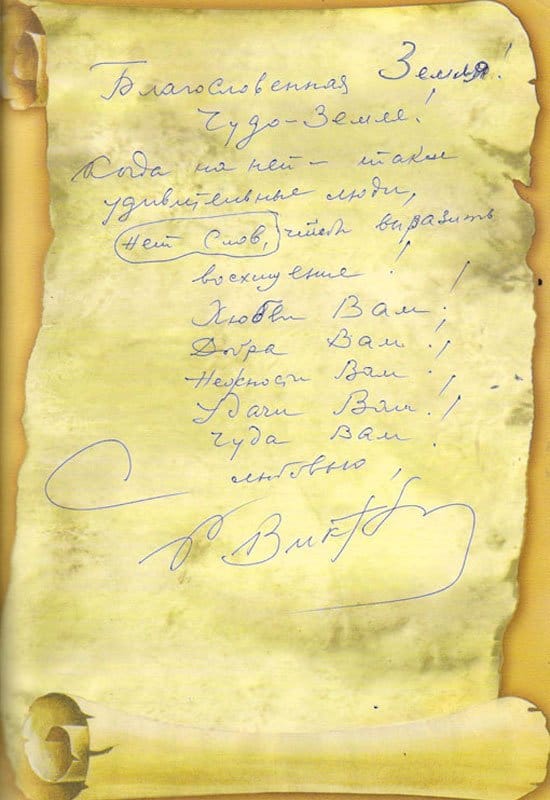 Благословенная Земля!
Чудо-Земле!
Когда на ней - такие
удивительные люди,
Нет Слов, чтоб выразить
восхищение!
Любви Вам!
Добра Вам!
Нежности Вам!
Удачи Вам!
Чуда Вам!
С любовью,
Р Викт